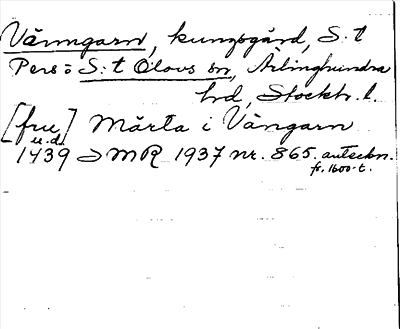 Värmgarn, kungsgård, S:t
Pers o S:t Olovs sn, Ärlinghundra
hd, Stockh. l.
[fru] Märta i Vängarn
u.d.
1439 ⊃ MR 1937 nr. 865. anteckn.
fr. 1600-t.